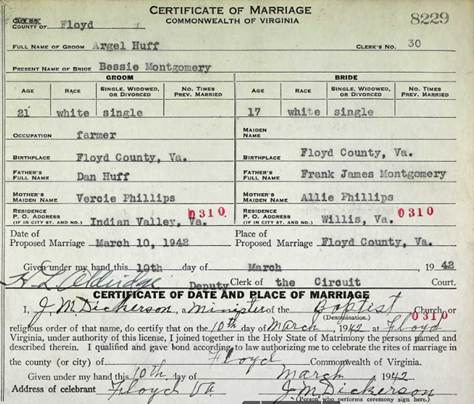 CERTIFICATE OF MARRIAGE
COMMONWEALTH OF VIRGINIA
8229
COUNTY OF Floyd
FULL NAME OF GROOM Argel Huff CLERK'S NO. 30
PRESENT NAME OF BRIDE Bessie Montgomery
GROOM BRIDE
AGE RACE SINGLE, WIDOWED, OR DIVORCED NO. TIMES PREV. MARRIED AGE RACE SINGLE, WIDOWED, OR DIVORCED NO. TIMES PREV. MARRIED
21 white single 17 white single
OCCUPATION farmer MAIDEN NAME
BIRTHPLACE Floyd County, Va. BIRTHPLACE Floyd County, Va.
FATHER'S FULL NAME Dan Huff FATHER'S FULL NAME Frank James Montgomery
MOTHER'S MAIDEN NAME Vercie Phillips MOTHER'S MAIDEN NAME Allie Phillips
RESIDENCE P. O. ADDRESS (IF IN CITY ST. AND NO.) Indian Valley, Va. 0310 RESIDENCE P. O. ADDRESS (IF IN CITY ST. AND NO.) Willis, Va. 0310
Date of Proposed Marriage March 10, 1942 Place of Proposed Marriage Floyd County, Va.
Given under my hand this 10th day of March 1942
Deputy Clerk of the Circuit Court.
CERTIFICATE OF DATE AND PLACE OF MARRIAGE
I, J. M. Dickerson, a Minister of the Baptist Church or
(Denomination) 0310
religious order of that name, do certify that on the 10th day of March, 1942 at Floyd
Virginia, under authority of this license, I joined together in the Holy State of Matrimony the persons named and
described therein. I qualified and gave bond according to law authorizing me to celebrate the rites of marriage in
the county (or city) of Floyd Commonwealth of Virginia.
Given under my hand this 10th day of March 1942
Address of celebrant Floyd Va J. M. Dickerson
(Person who performs ceremony sign here.)